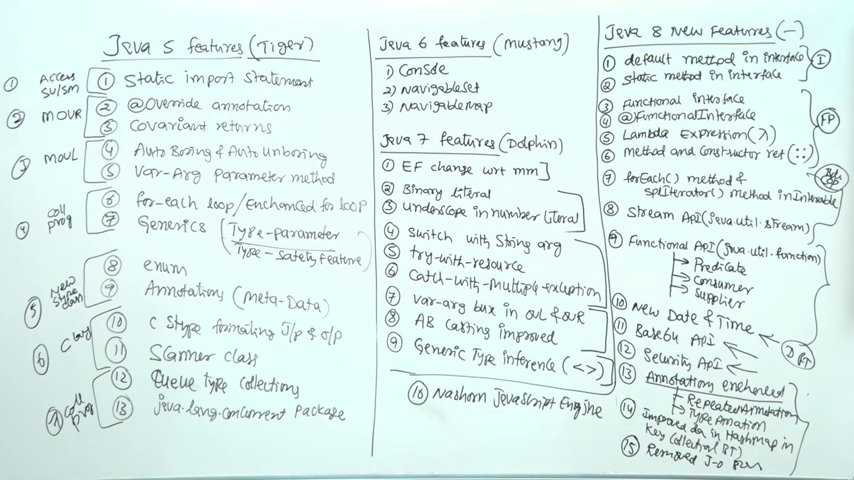 Java 5 features (Tiger)
Access
SV/SM
① Static import Statement
② MOVR
② @Override annotation
③ Covariant returns
③ MOVL
④ Auto Boxing & Auto Unboxing
⑤ Var-Arg Parameter method
④ Coll prog
⑥ for-each loop/Enchanced for loop
⑦ Generics (Type-parameter
Type-Safety Feature)
⑤ New Style class
⑧ enum
⑨ Annotations (Meta-Data)
⑥ Class
⑩ C Style formating I/p & o/p
⑪ Scanner class
⑦ Coll prog
⑫ Queue Type Collections
⑬ java.lang.concurrent package
Java 6 features (Mustang)
1) Console
2) NavigableSet
3) NavigableMap
Java 7 features (Dolphin)
① EF change wrt mm]
② Binary literal
③ Underscope in number literal
④ Switch with String arg
⑤ try-with-resource
⑥ Catch-with-Multiple-exception
⑦ Var-arg bux in OVL & OVR
⑧ AB Casting improved
⑨ Generic Type inference (<>)
⑯ Nashorn JavaScript Engine
Java 8 New Features (-)
① default method in interface
② Static method in interface
I
③ Functional interface
④ @FunctionalInterface
⑤ Lambda Expression (λ)
⑥ Method and Constructor ref (::)
FP
⑦ forEach() method &
spliterator() method in Iterable
⑧ Stream API (java.util.stream)
⑨ Functional API (java.util.function)
→ Predicate
→ Consumer
→ Supplier
⑩ New Date & Time
⑪ Base64 API
⑫ Security API
⑬ Annotations enchanced
→ Repeated Annotation
→ Type Annation
⑭ Improved in HashMap in
Key Collection (BT)
⑮ Removed